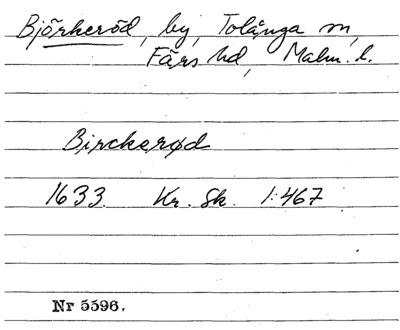 Björkeröd, by, Tolånga sn,
Färs hd, Malm. l.
Birckerød
1633 Kr. Sk. 1:467
Nr 5596.